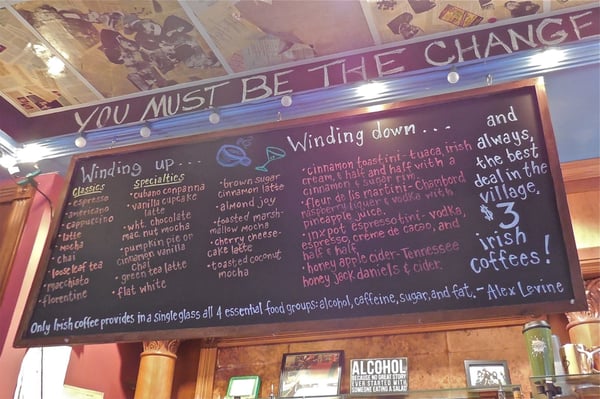 YOU MUST BE THE CHANGE
Winding up...
Classics
espresso
americano
cappuccino
latte
mocha
chai
loose leaf tea
macchiato
florentine
Specialties
• cubano conpanna
• vanilla cupcake
latte
• wht. chocolate
mac nut mocha
• pumpkin pie or
cinnamon vanilla
chai
• green tea latte
• flat white
• brown sugar
cinnamon latte
• almond joy
• toasted marsh-
mallow mocha
• cherry cheese-
cake latte
• toasted coconut
mocha
Winding down...
• cinnamon toastini - tuaca, irish
cream, & half and half with a
cinnamon & sugar rim.
• fleur de lis martini - Chambord
raspberry liquer & vodka with
pineapple juice.
• inxpot espressotini - vodka,
espresso, crème de cacao, and
half & half.
• honey apple cider - Tennessee
honey jack daniels & cider.
and
always,
the best
deal in the
village,
$3
irish
coffees!
Only Irish coffee provides in a single glass all 4 essential food groups: alcohol, caffeine, sugar, and fat. - Alex Levine
ALCOHOL
BECAUSE NO GREAT STORY
EVER STARTED WITH SOMEONE
EATING A SALAD